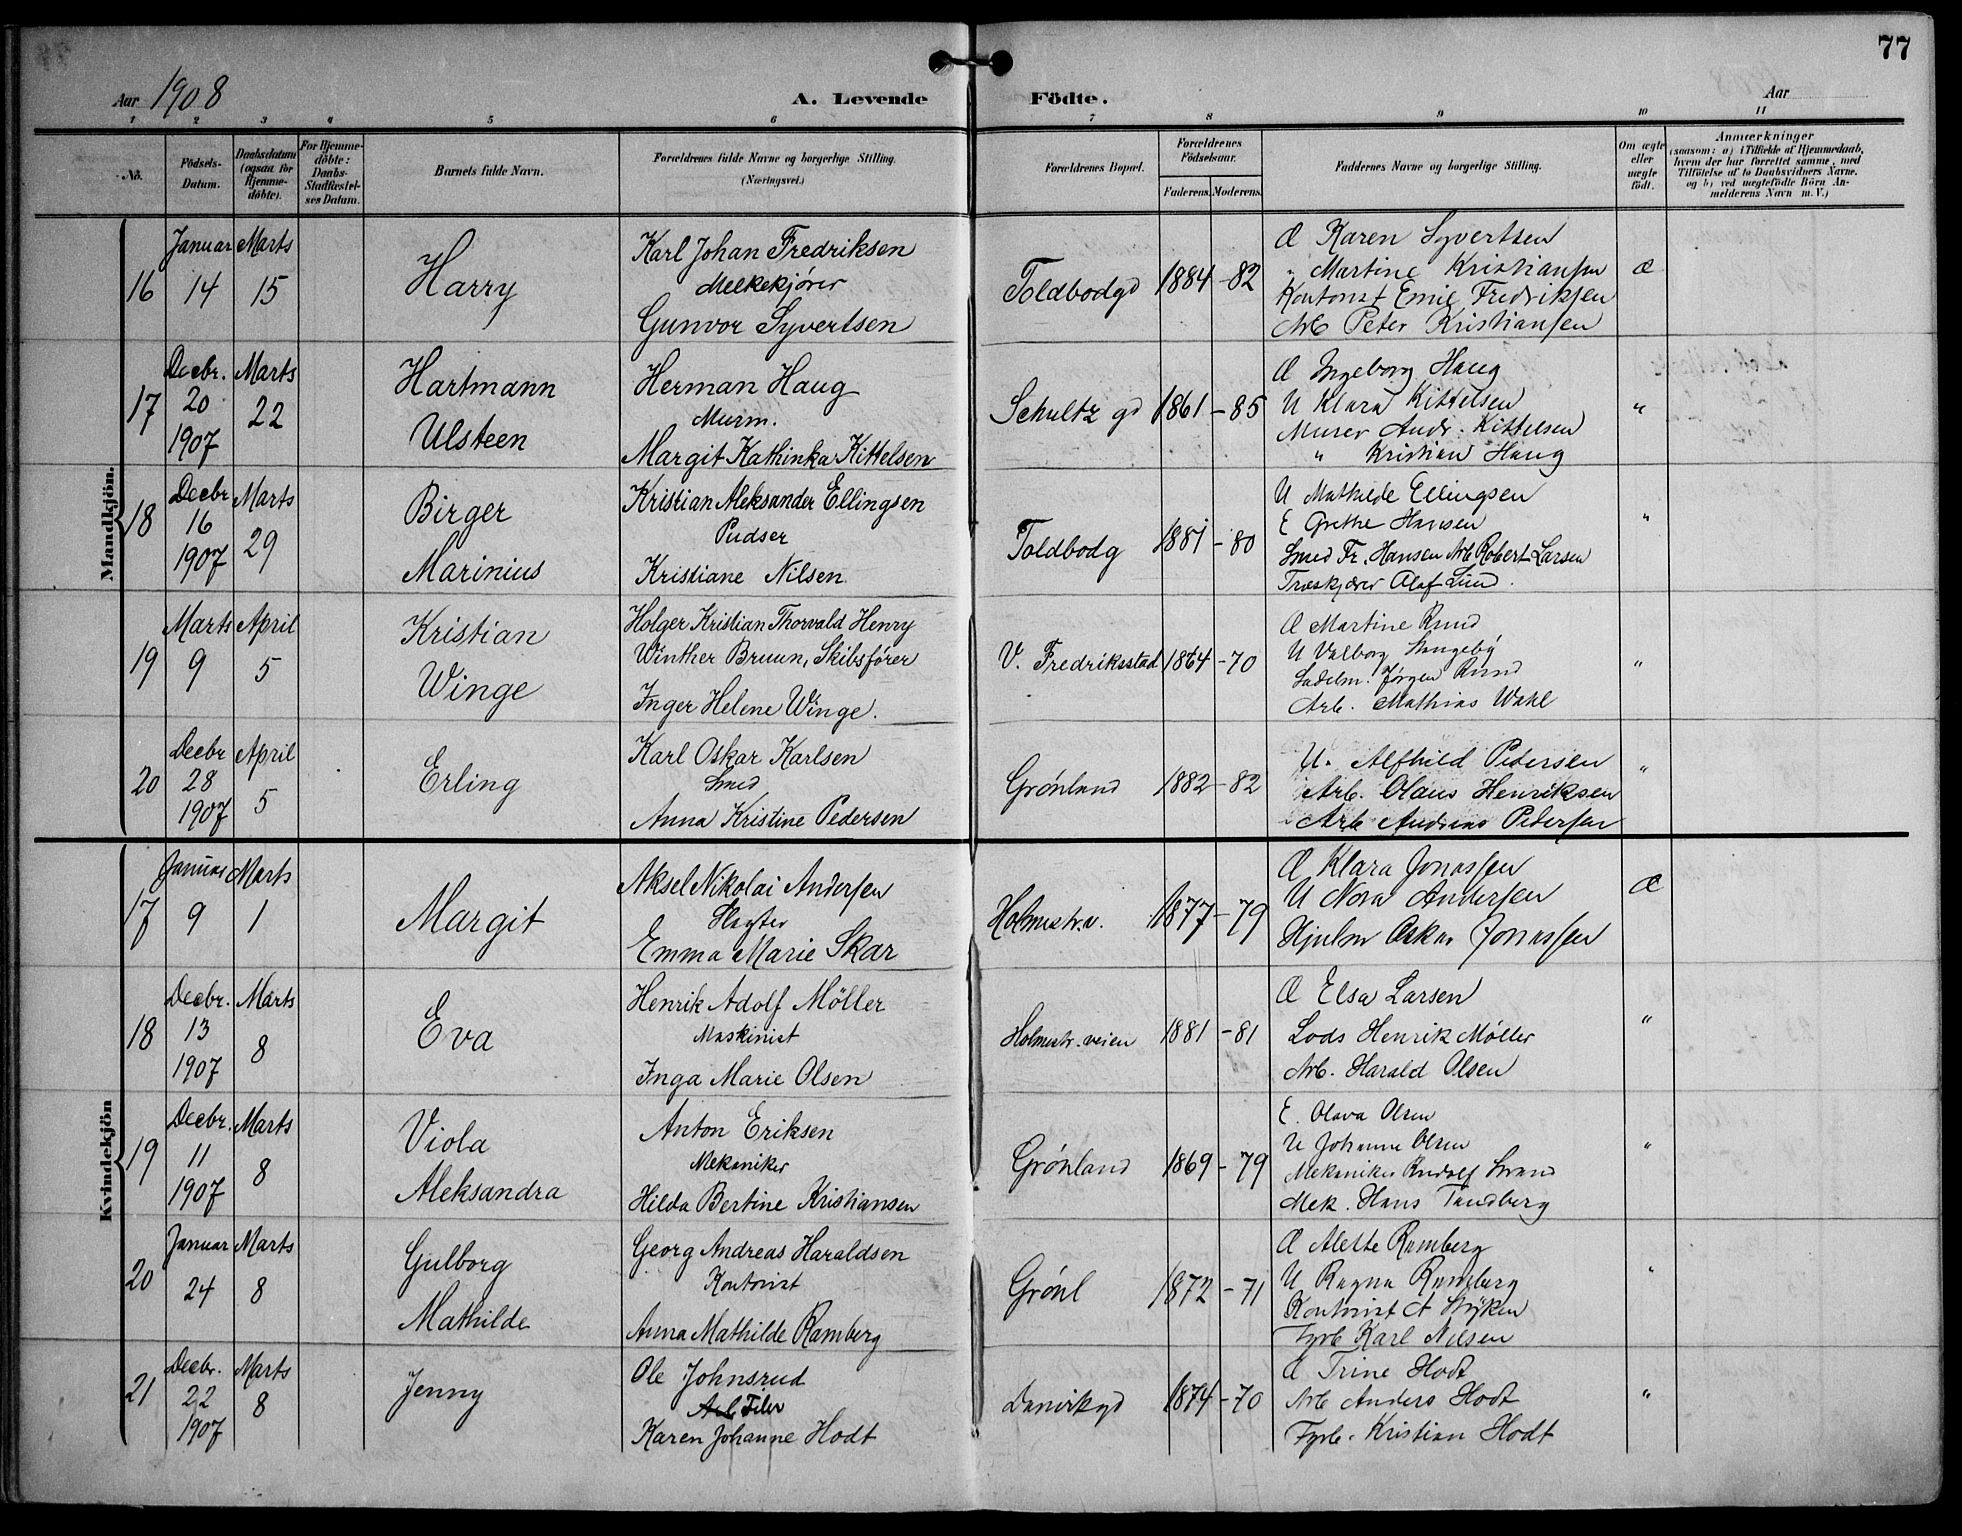 77
Aar 1908
A. Levende Födte.
Aar
1 2 3 4 5 6 7 8 9 10 11
No.
Födsels-Datum.
Daabsdatum (ogsaa for Hjemme-döbte).
For Hjemme-döbte: Daabs-Stadfæstel-ses Datum.
Barnets fulde Navn.
Forældrenes fulde Navne og borgerlige Stilling.
(Næringsvei.)
Forældrenes Bopæl.
Forældrenes Födselsaar.
Faderens. Moderens.
Faddernes Navne og borgerlige Stilling.
Om ægte eller uægte födt.
Anmærkninger
(saasom: a) i Tilfælde af Hjemmedaab,
hvem der har forrettet samme, med
Tilföielse af to Daabsvidners Navne.
og b) ved uægtefödte Börn An-
melderens Navn m. V.)
Mandkjön.
16
Januar 14
Marts 15
Harry
Karl Johan Fredriksen
Melkekjører
Gunvor Syvertsen
Toldbodgd
1884 - 82
Æ Karen Syvertsen
" Martine Kristiansen
Kontorist Emil Fredriksen
Arb Peter Kristiansen
Æ
17
Decbr. 20 1907
Marts 22
Hartmann
Ulsteen
Herman Haug
Murm.
Margit Kathinka Kittelsen
Schultz gd
1861 - 85
Æ Ingeborg Haug
U Klara Kittelsen
Murer Andr. Kittelsen
" Kristian Haug
"
18
Decbr 16 1907
Marts 29
Birger
Marinius
Kristian Aleksander Ellingsen
Pudser
Kristiane Nilsen.
Toldbodg
1881 - 80
U Mathilde Ellingsen
E Grethe Hansen
Smed Fr. Hansen Arb Robert Larsen
Træskjærer Olaf Lund.
"
19
Marts 9
April 5
Kristian
Winge
Holger Kristian Thorvald Henry
Winther Bruun, Skibsfører
Inger Helene Winge.
V. Fredriksstad
1864 - 70
Æ Martine Ruud
U Valborg
Sadelm. Jørgen Ruud
Arb. Mathias Wahl
"
20
Decbr 28 1907
April 5
Erling
Karl Oskar Karlsen
Smed
Anna Kristine Pedersen
Grønland
1882 - 82
U. Alfhild Pedersen
Arb. Olaus Henriksen
Arb Andreas Pedersen
"
Kvindekjön
17
Januar 9
Marts 1
Margit
Aksel Nikolai Andersen
Slagter
Emma Marie Skar
Holmestr.v.
1877 - 79
Æ Klara Jonassen
U Nora Andersen
Hjulm Oskar Jonassen
Æ
18
Decbr. 13 1907
Marts 8
Eva
Henrik Adolf Möller
Maskinist
Inga Marie Olsen
Holmestr.veien
1881 - 81
Æ Elsa Larsen
Lods Henrik Møller
Arb. Harald Olsen
"
19
Decbr. 11 1907
Marts 8
Viola
Aleksandra
Anton Eriksen
Mekaniker
Hilda Bertine Kristiansen
Grønland
1869 - 79
E. Olava Olsen
U Johanne Olsen
Mekaniker Rudolf Strand
Mek. Hans Tandberg
"
20
Januar 24
Marts 8
Gulborg
Mathilde
Georg Andreas Haraldsen
Kontorist
Anna Mathilde Ramberg
Grønl
1872 - 71
Æ Alette Ramberg
U Ragna Ramberg
Kontorist A
Fyrb Karl Nilsen
"
21
Decbr. 22 1907
Marts 8
Jenny
Ole Johnsrud
Arb Filer
Karen Johanne Hodt
Danvikgd
1874 - 70
Æ Trine Hodt
Arb Anders Hodt
Fyrb. Kristian Hodt
"